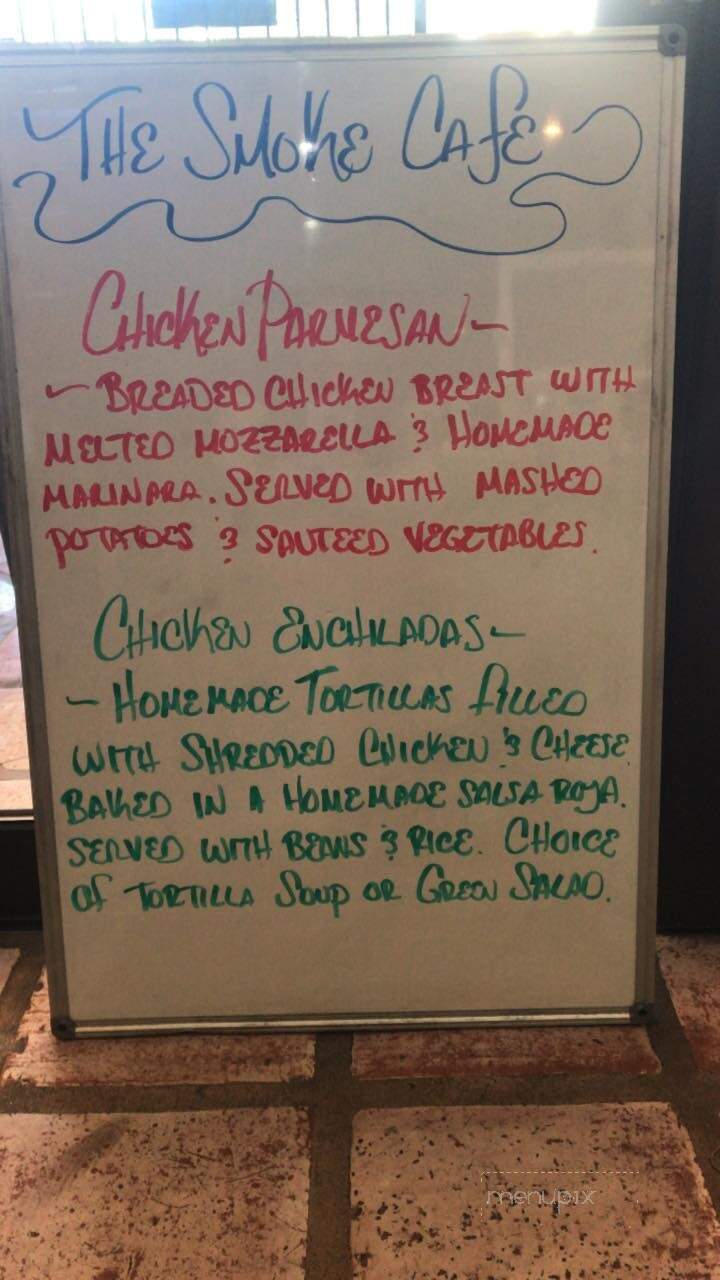 THE SMOKE CAFE
CHICKEN PARMESAN -
- BREADED CHICKEN BREAST WITH
MELTED MOZZARELLA & HOMEMADE
MARINARA. SERVED WITH MASHED
POTATOES & SAUTEED VEGETABLES.
CHICKEN ENCHILADAS -
- HOMEMADE TORTILLAS FILLED
WITH SHREDDED CHICKEN & CHEESE
BAKED IN A HOMEMADE SALSA ROJA.
SERVED WITH BEANS & RICE. CHOICE
OF TORTILLA SOUP OR GREEN SALAD.
menupix